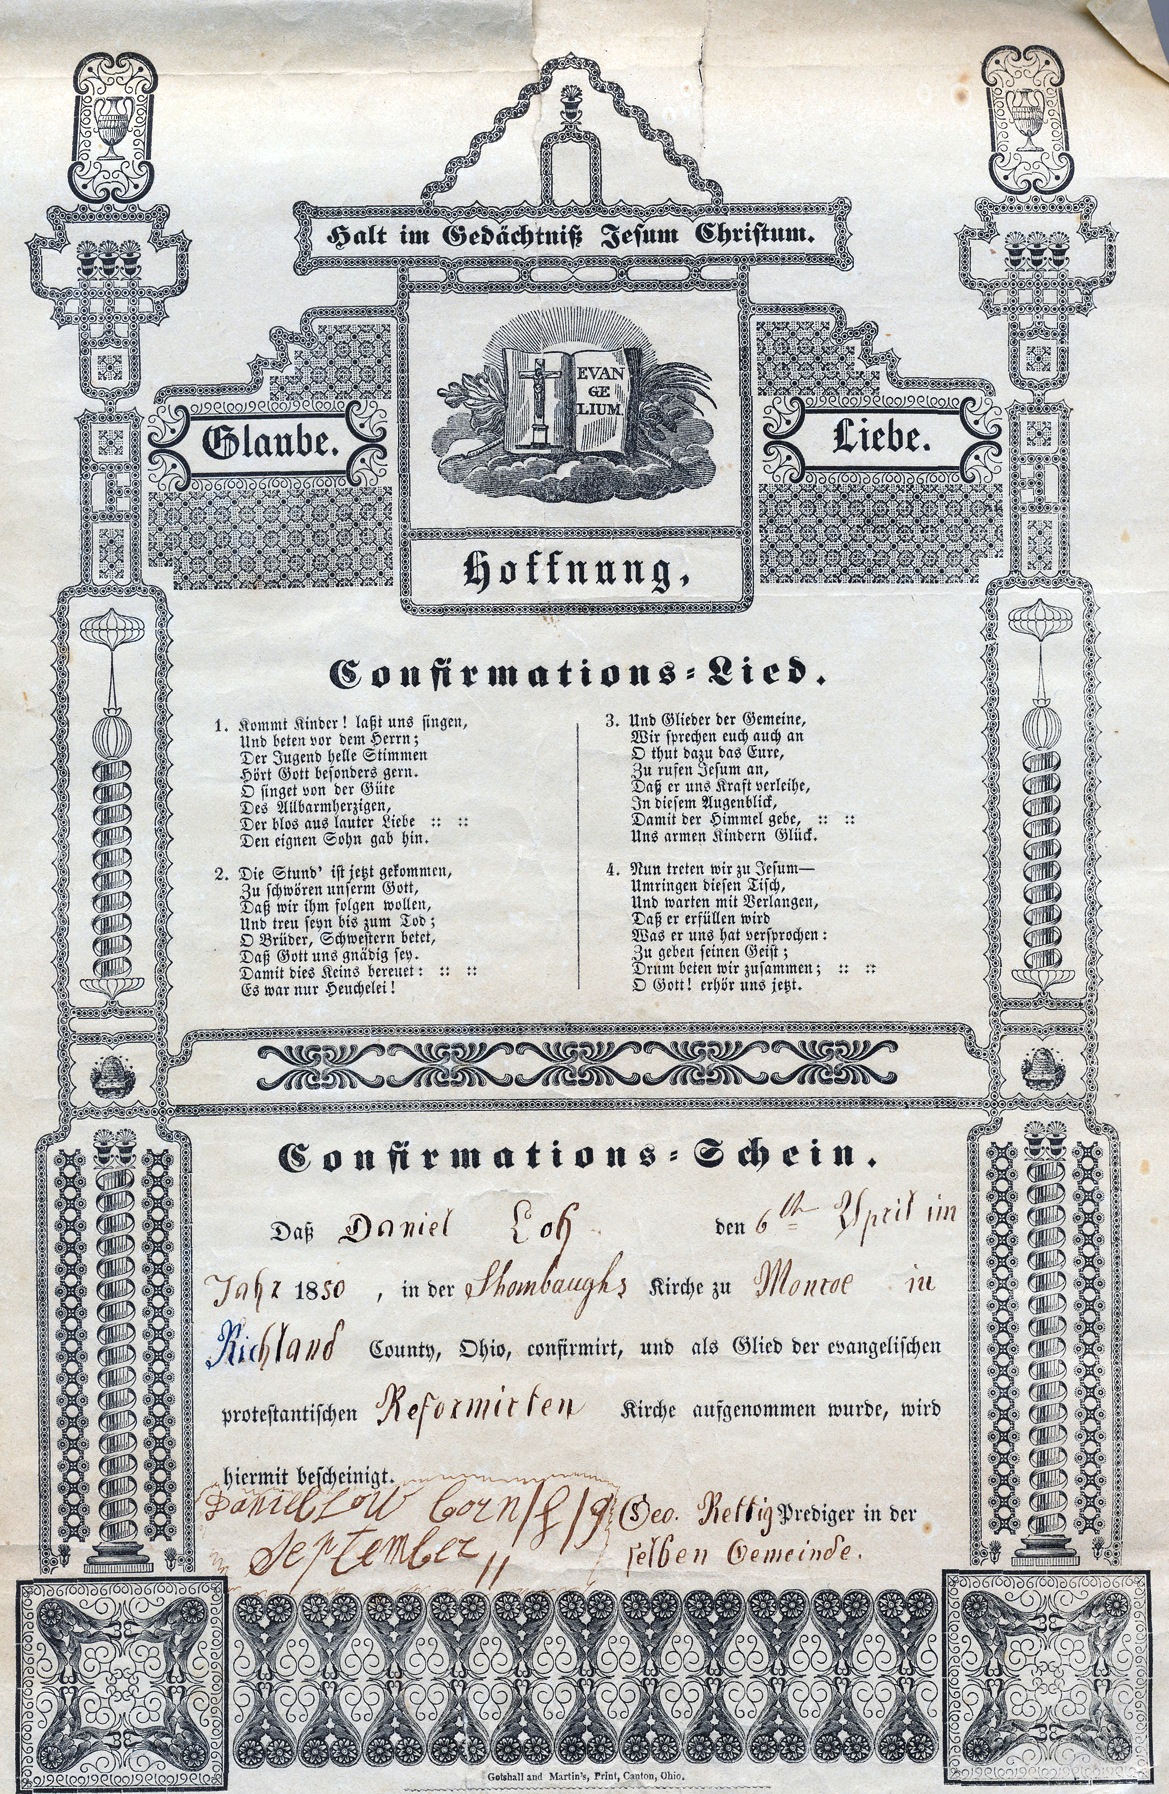 Halt im Gedächtniß Jesum Christum.
EVAN
GE
LIUM.
Glaube.
Liebe.
Hoffnung,
Confirmations-Lied.
1. Kommt Kinder! laßt uns singen,
Und beten vor dem Herrn;
Der Jugend helle Stimmen
Hört Gott besonders gern.
O singet von der Güte
Des Allbarmherzigen,
Der blos aus lauter Liebe :: ::
Den eignen Sohn gab hin.
2. Die Stund' ist jetzt gekommen,
Zu schwören unserm Gott,
Daß wir ihm folgen wollen,
Und treu seyn bis zum Tod;
O Brüder, Schwestern betet,
Daß Gott uns gnädig sey.
Damit dies Keins bereuet: :: ::
Es war nur Heuchelei!
3. Und Glieder der Gemeine,
Wir sprechen euch auch an
O thut dazu das Eure,
Zu rufen Jesum an,
Daß er uns Kraft verleihe,
In diesem Augenblick,
Damit der Himmel gebe, :: ::
Uns armen Kindern Glück.
4. Nun treten wir zu Jesum—
Umringen diesen Tisch,
Und warten mit Verlangen,
Daß er erfüllen wird
Was er uns hat versprochen:
Zu geben seinen Geist;
Drum beten wir zusammen; :: ::
O Gott! erhör uns jetzt.
Confirmations-Schein.
Daß Daniel Loh den 6th April im
Jahr 1850, in der Shambaughs Kirche zu Monroe in
Richland County, Ohio, confirmirt, und als Glied der evangelischen
protestantischen Reformirten Kirche aufgenommen wurde, wird
hiermit bescheinigt.
Daniel Low born
September
Geo. Rettig Prediger in der
selben Gemeinde.
Gotshall and Martin's, Print, Canton, Ohio.